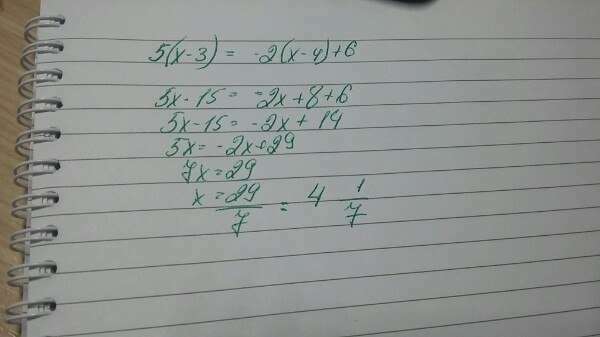 5(x-3) = -2(x-4)+6
5x-15 = -2x+8+6
5x-15 = -2x+14
5x = -2x+29
7x = 29
x = 29/7 = 4 1/7